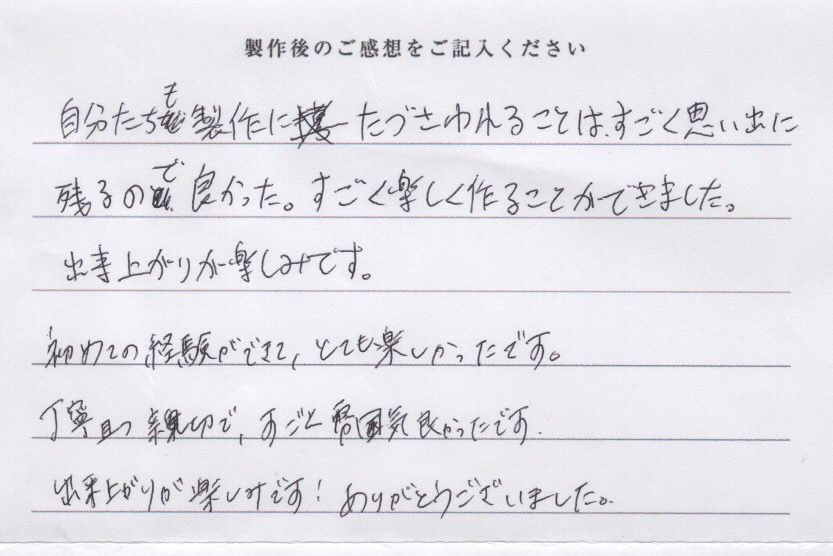 製作後のご感想をご記入ください
自分たちも製作にたづさわれることは、すごく思い出に
残るので良かった。すごく楽しく作ることができました。
出来上がりが楽しみです。
初めての経験ができて、とても楽しかったです。
丁寧且つ親切で、すごく雰囲気良かったです.
出来上がりが楽しみです!ありがとうございました。